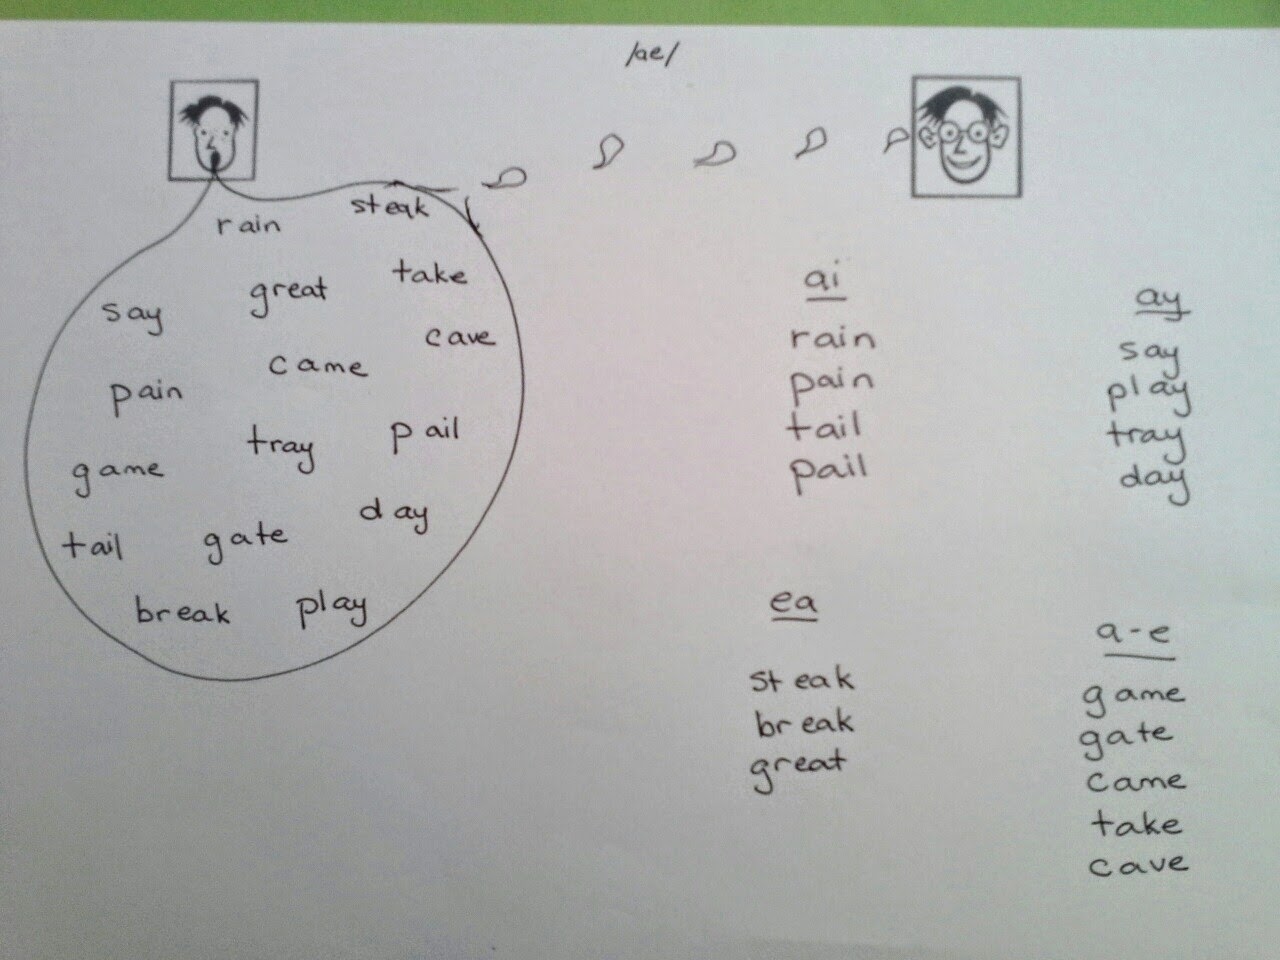 /ae/
steak
rain
take
great
say
cave
came
pain
pail
tray
game
day
gate
tail
break
play
ai
rain
pain
tail
pail
ay
say
play
tray
day
ea
steak
break
great
a-e
game
gate
came
take
cave